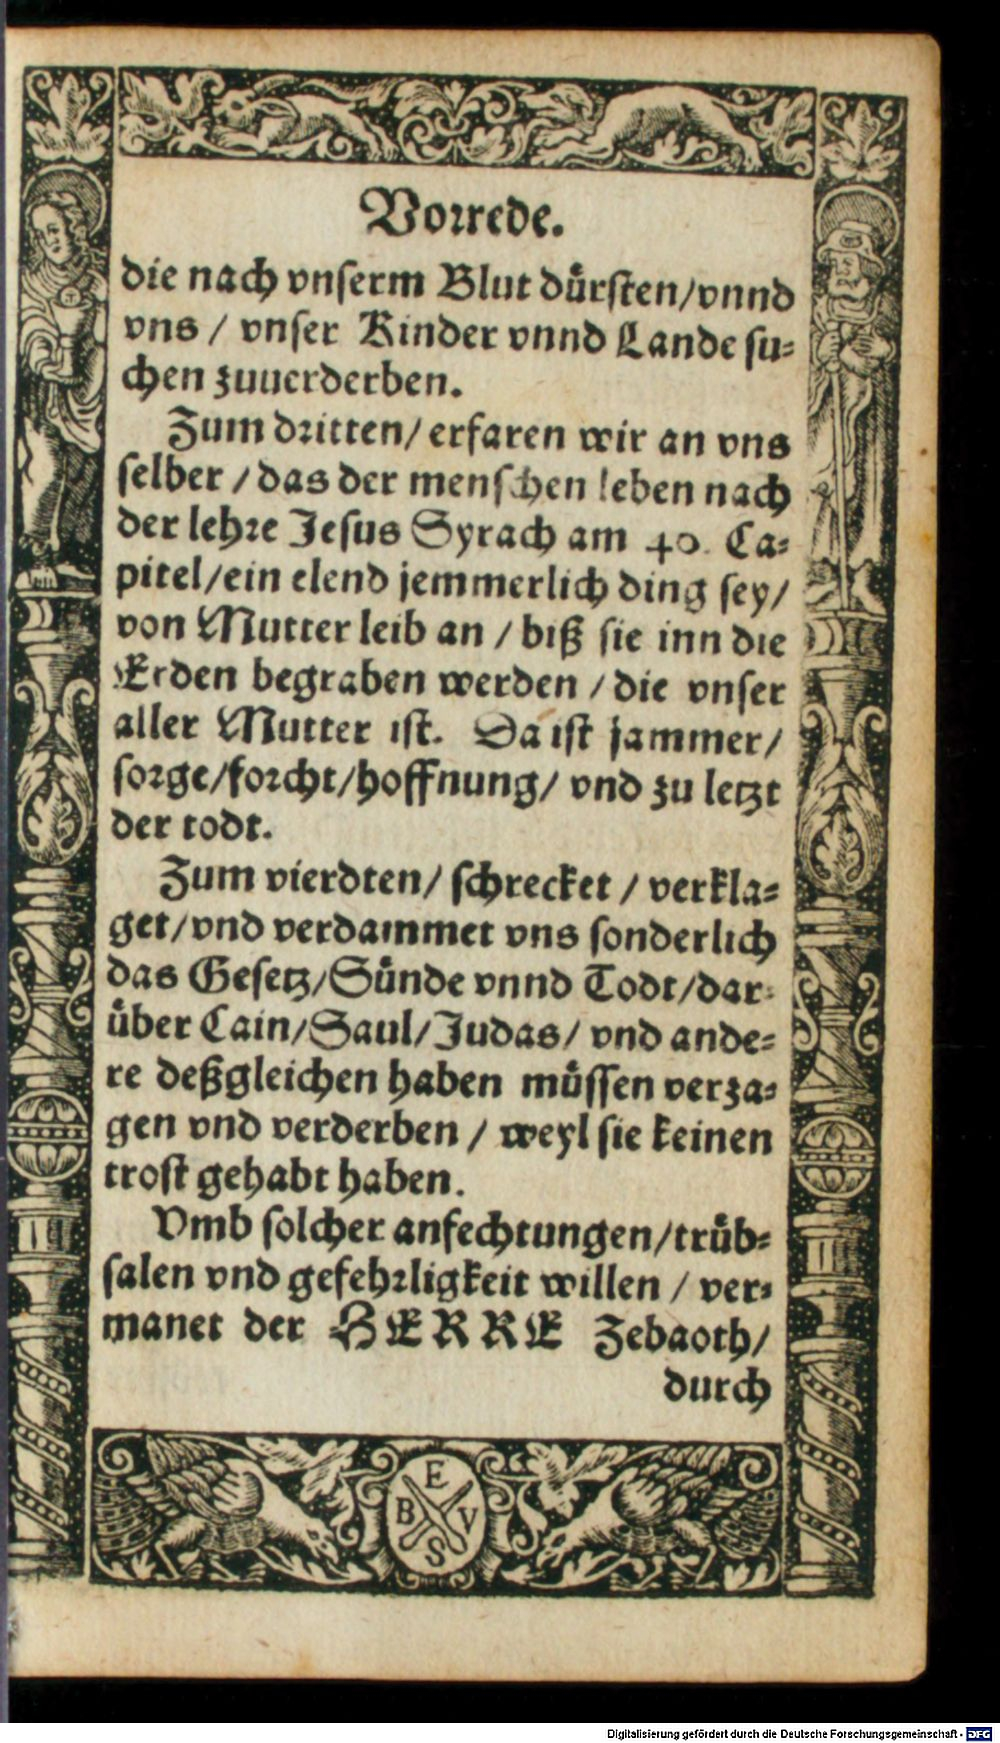 Vorrede.
die nach vnserm Blut dürsten/vnnd
vns / vnser Kinder vnnd Lande su⸗
chen zuuerderben.
Zum dritten/ erfaren wir an vns
selber / das der menschen leben nach
der lehre Jesus Syrach am 40. Ca⸗
pitel/ein elend jemmerlich ding sey/
von Mutter leib an / biß sie inn die
Erden begraben werden / die vnser
aller Mutter ist. Da ist jammer/
sorge/forcht/hoffnung/ vnd zu letzt
der todt.
Zum vierdten/ schrecket / verkla⸗
get/vnd verdammet vns sonderlich
das Gesetz/Sünde vnnd Todt/dar⸗
über Cain/Saul/Judas/ vnd ande⸗
re deßgleichen haben müssen verza⸗
gen vnd verderben / weyl sie keinen
trost gehabt haben.
Vmb solcher anfechtungen/trüb⸗
salen vnd gefehrligkeit willen / ver⸗
manet der HERRE Zebaoth/
durch
E
B V
S
Digitalisierung gefördert durch die Deutsche Forschungsgemeinschaft - DFG